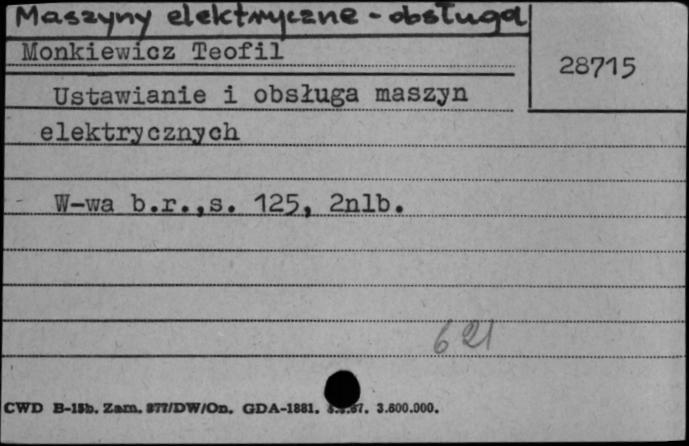 Maszyny elektryczne - obsługa
Monkiewicz Teofil
28715
Ustawianie i obsługa maszyn
elektrycznych
W-wa b.r.,s. 125, 2nlb.
621
CWD B-15b. Zam. 877/DW/On. GDA-1881. 67. 3.600.000.